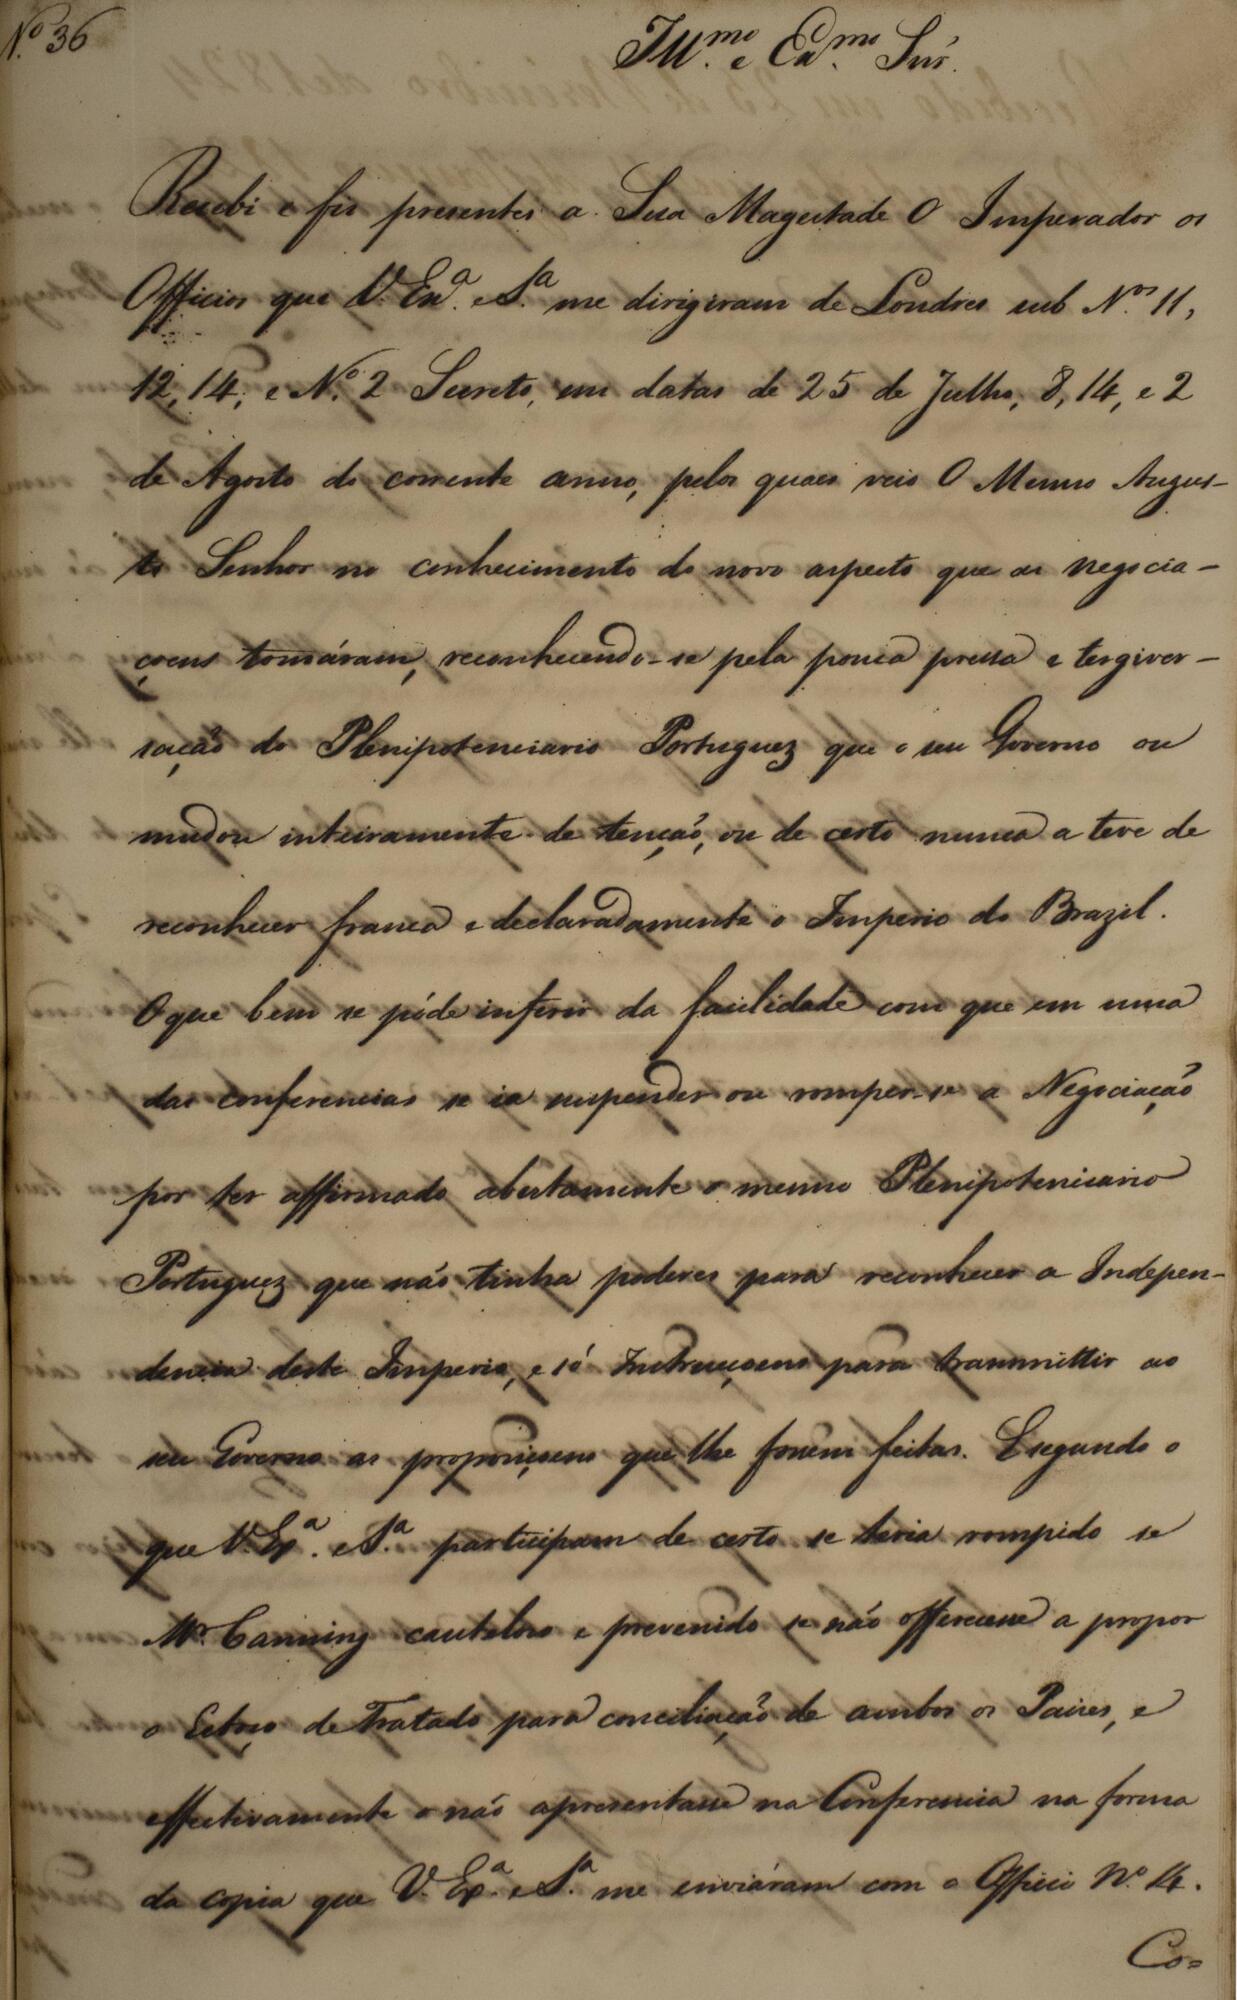 Nº 36
Illmo. e Exmo. Snr.
Recebi e fis presentes a Sua Magestade O Imperador os
Officios que V. Exª. e Sª. me dirigiram de Londres sub Nos. 11,
12, 14, e Nº 2 Secreto, em datas de 25 de Julho, 8, 14, e 2
de Agosto do corrente anno, pelos quaes veio O Mesmo Augus-
to Senhor no conhecimento do novo aspecto que as negocia-
çoens tomáram, reconhecendo-se pela pouca pressa e tergiver-
sação do Plenipotenciario Portuguez que o seu Governo ou
mudou inteiramente de tenção, ou de certo nunca a teve de
reconhecer franca e declaradamente o Imperio do Brazil.
O que bem se póde inferir da facilidade com que em uma
das conferencias se ia suspender ou romper-se a Negociação
por ter affirmado abertamente o mesmo Plenipotenciario
Portuguez que não tinha poderes para reconhecer a Indepen-
dencia deste Imperio, e só Instrucçoens para transmittir ao
seu Governo as proposiçoens que lhe fossem feitas. E segundo o
que V. Exª. e Sª. participam de certo se teria rompido se
Mr. Canning cauteloso e prevenido se não offerecesse a propor
o Esboço de Tratado para conciliação de ambos os Paizes, e
effectivamente o não apresentasse na Conferencia na forma
da copia que V. Exª. e Sª. me enviáram com o Officio Nº 14.
Co=